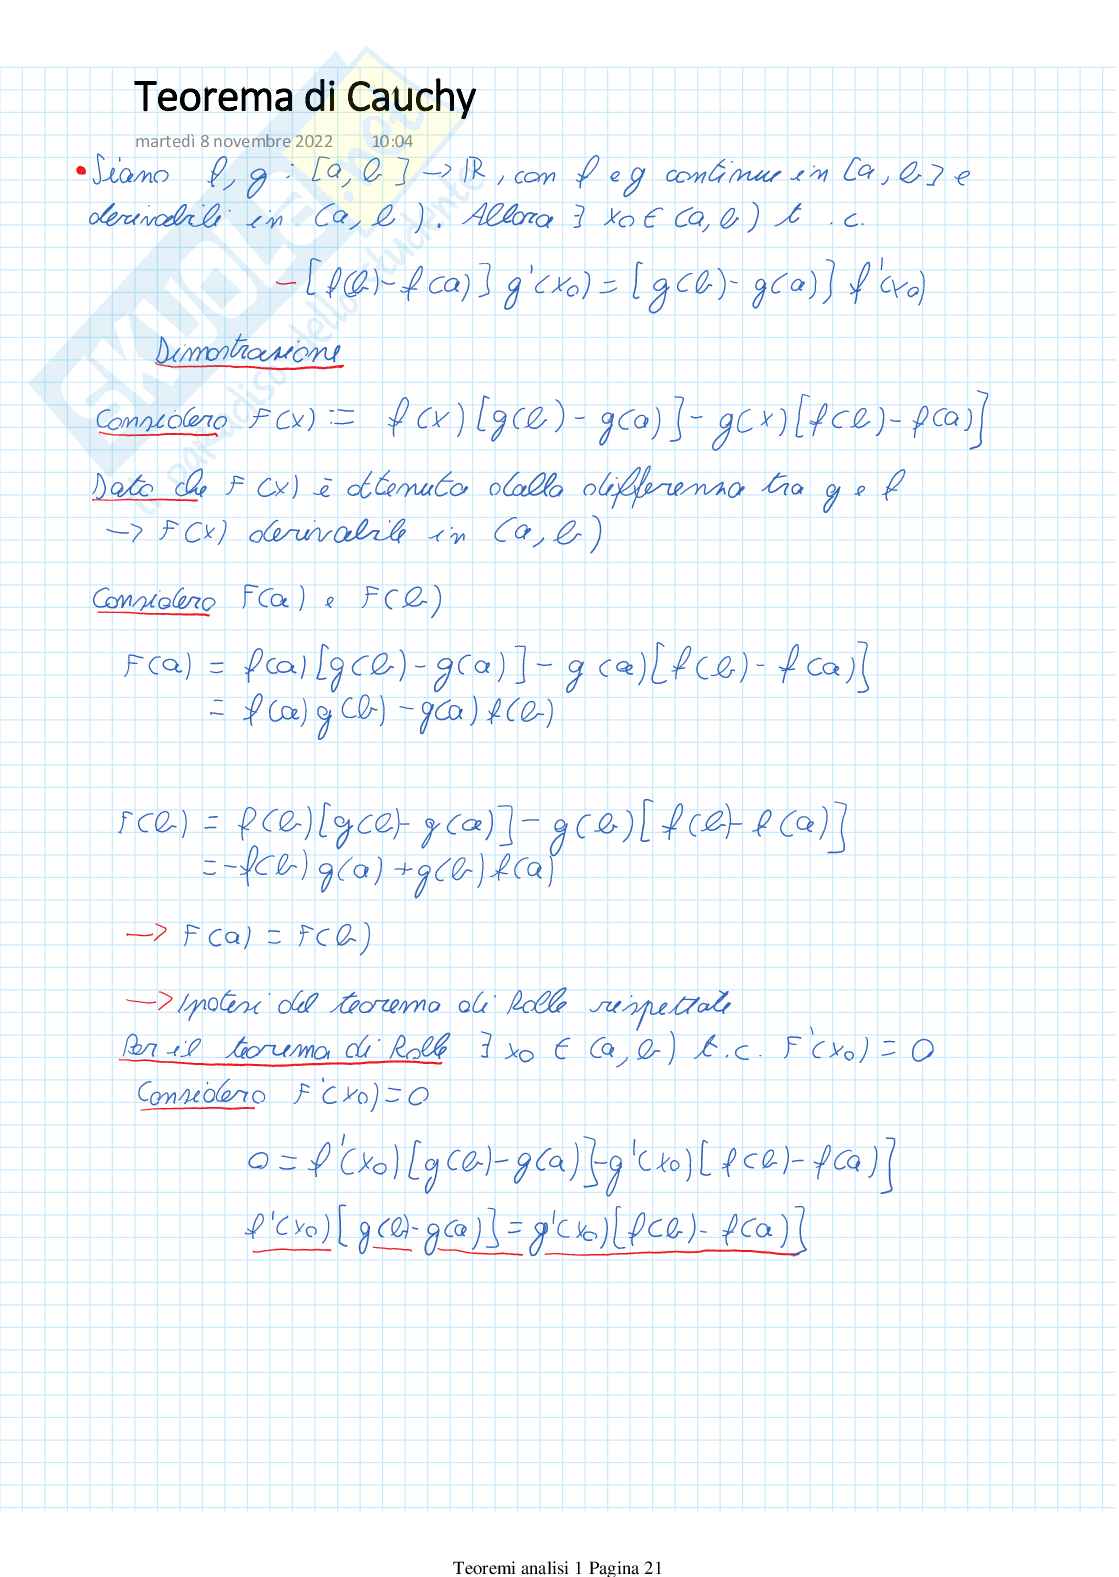 Teorema di Cauchy
martedì 8 novembre 2022 10:04
• Siano f, g : [a, b] → ℝ, con f e g continue in [a, b] e
derivabili in (a, b). Allora ∃ x₀ ∈ (a, b) t.c.
- [f(b) - f(a)] g'(x₀) = [g(b) - g(a)] f'(x₀)
Dimostrazione
Considero F(x) := f(x)[g(b) - g(a)] - g(x)[f(b) - f(a)]
Dato che F(x) è ottenuta dalla differenza tra g e f
→ F(x) derivabile in (a, b)
Considero F(a) e F(b)
F(a) = f(a)[g(b) - g(a)] - g(a)[f(b) - f(a)]
= f(a)g(b) - g(a)f(b)
F(b) = f(b)[g(b) - g(a)] - g(b)[f(b) - f(a)]
= -f(b)g(a) + g(b)f(a)
→ F(a) = F(b)
→ Ipotesi del teorema di Rolle rispettate
Per il teorema di Rolle ∃ x₀ ∈ (a, b) t.c. F'(x₀) = 0
Considero F'(x₀) = 0
0 = f'(x₀)[g(b) - g(a)] - g'(x₀)[f(b) - f(a)]
f'(x₀)[g(b) - g(a)] = g'(x₀)[f(b) - f(a)]
Teoremi analisi 1 Pagina 21